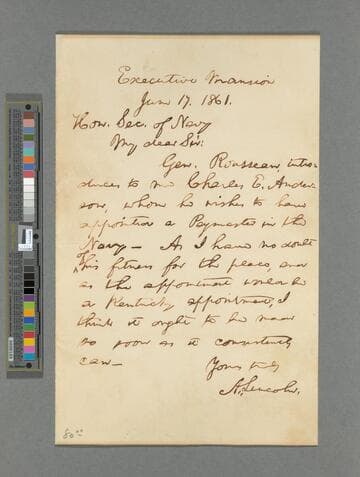 Executive Mansion
June 17. 1861.
Hon. Sec. of Navy
My dear Sir:
Gen. Rousseau, intro-
duces to me Charles E. Ander-
son, whom he wishes to have
appointed a Paymaster in the
Navy — As I have no doubt
of
his fitness for the place, and
as the appointment would be
a Kentucky appointment, I
think it ought to be made
so soon as it consistently
can —
Yours truly
A. Lincoln.
80 00